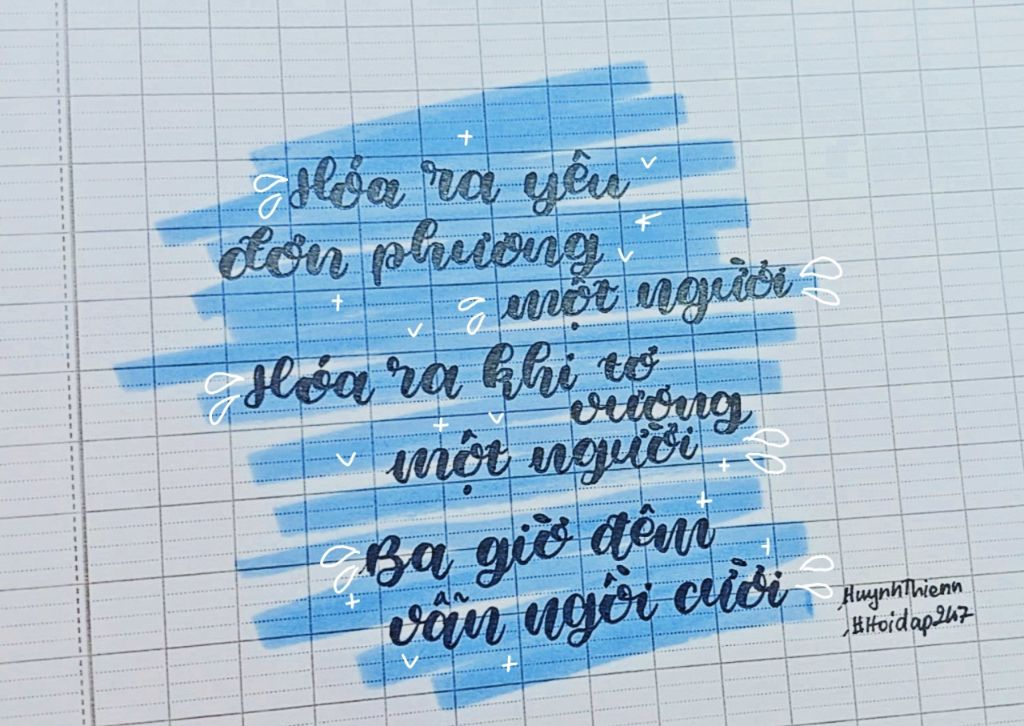 Hóa ra yêu
đơn phương
một người
Hóa ra khi tơ
vương
một người
Ba giờ đêm
vẫn ngồi cười
HuynhThienn
#Hoidap247